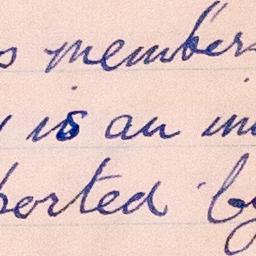 members
is an
ported by